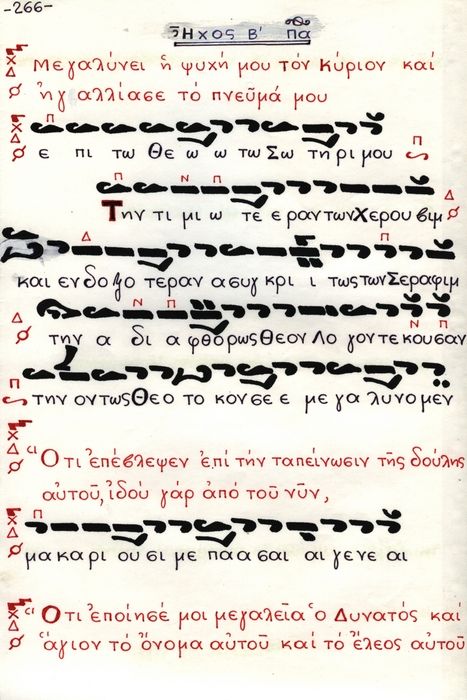 -266-
Ἦχος Β' Πα
Μεγαλύνει ἡ ψυχή μου τόν Κύριον καί
ἠγαλλίασε τό πνεῦμά μου
ε πι τω Θε ω ω τω Σω τη ρι μου
Την τι μι ω τε ε ραν των Χε ρου βιμ
και εν δο ξο τε ραν α συγ κρι ι τως των Σε ρα φιμ
την α δι α φθο ρως Θε ον Λο γον τε κου σαν
την ον τως Θε ο το κον σε ε με γα λυ νο μεν
Ὅτι ἐπέβλεψεν ἐπί τήν ταπείνωσιν τῆς δούλης
αὐτοῦ, ἰδού γάρ ἀπό τοῦ νῦν,
μα κα ρι ου σι με πα α σαι αι γε νε αι
Ὅτι ἐποίησέ μοι μεγαλεῖα ὁ Δυνατός καί
ἅγιον τό ὄνομα αὐτοῦ καί τό ἔλεος αὐτοῦ